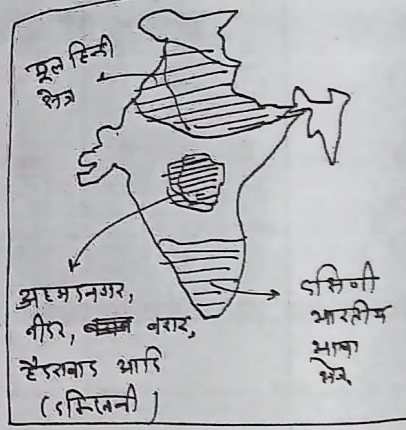 मूल हिन्दी
क्षेत्र
अहमदनगर,
बीदर, बरार,
हैदराबाद आदि
(दक्खिनी)
दक्षिणी
भारतीय
भाषा
क्षेत्र